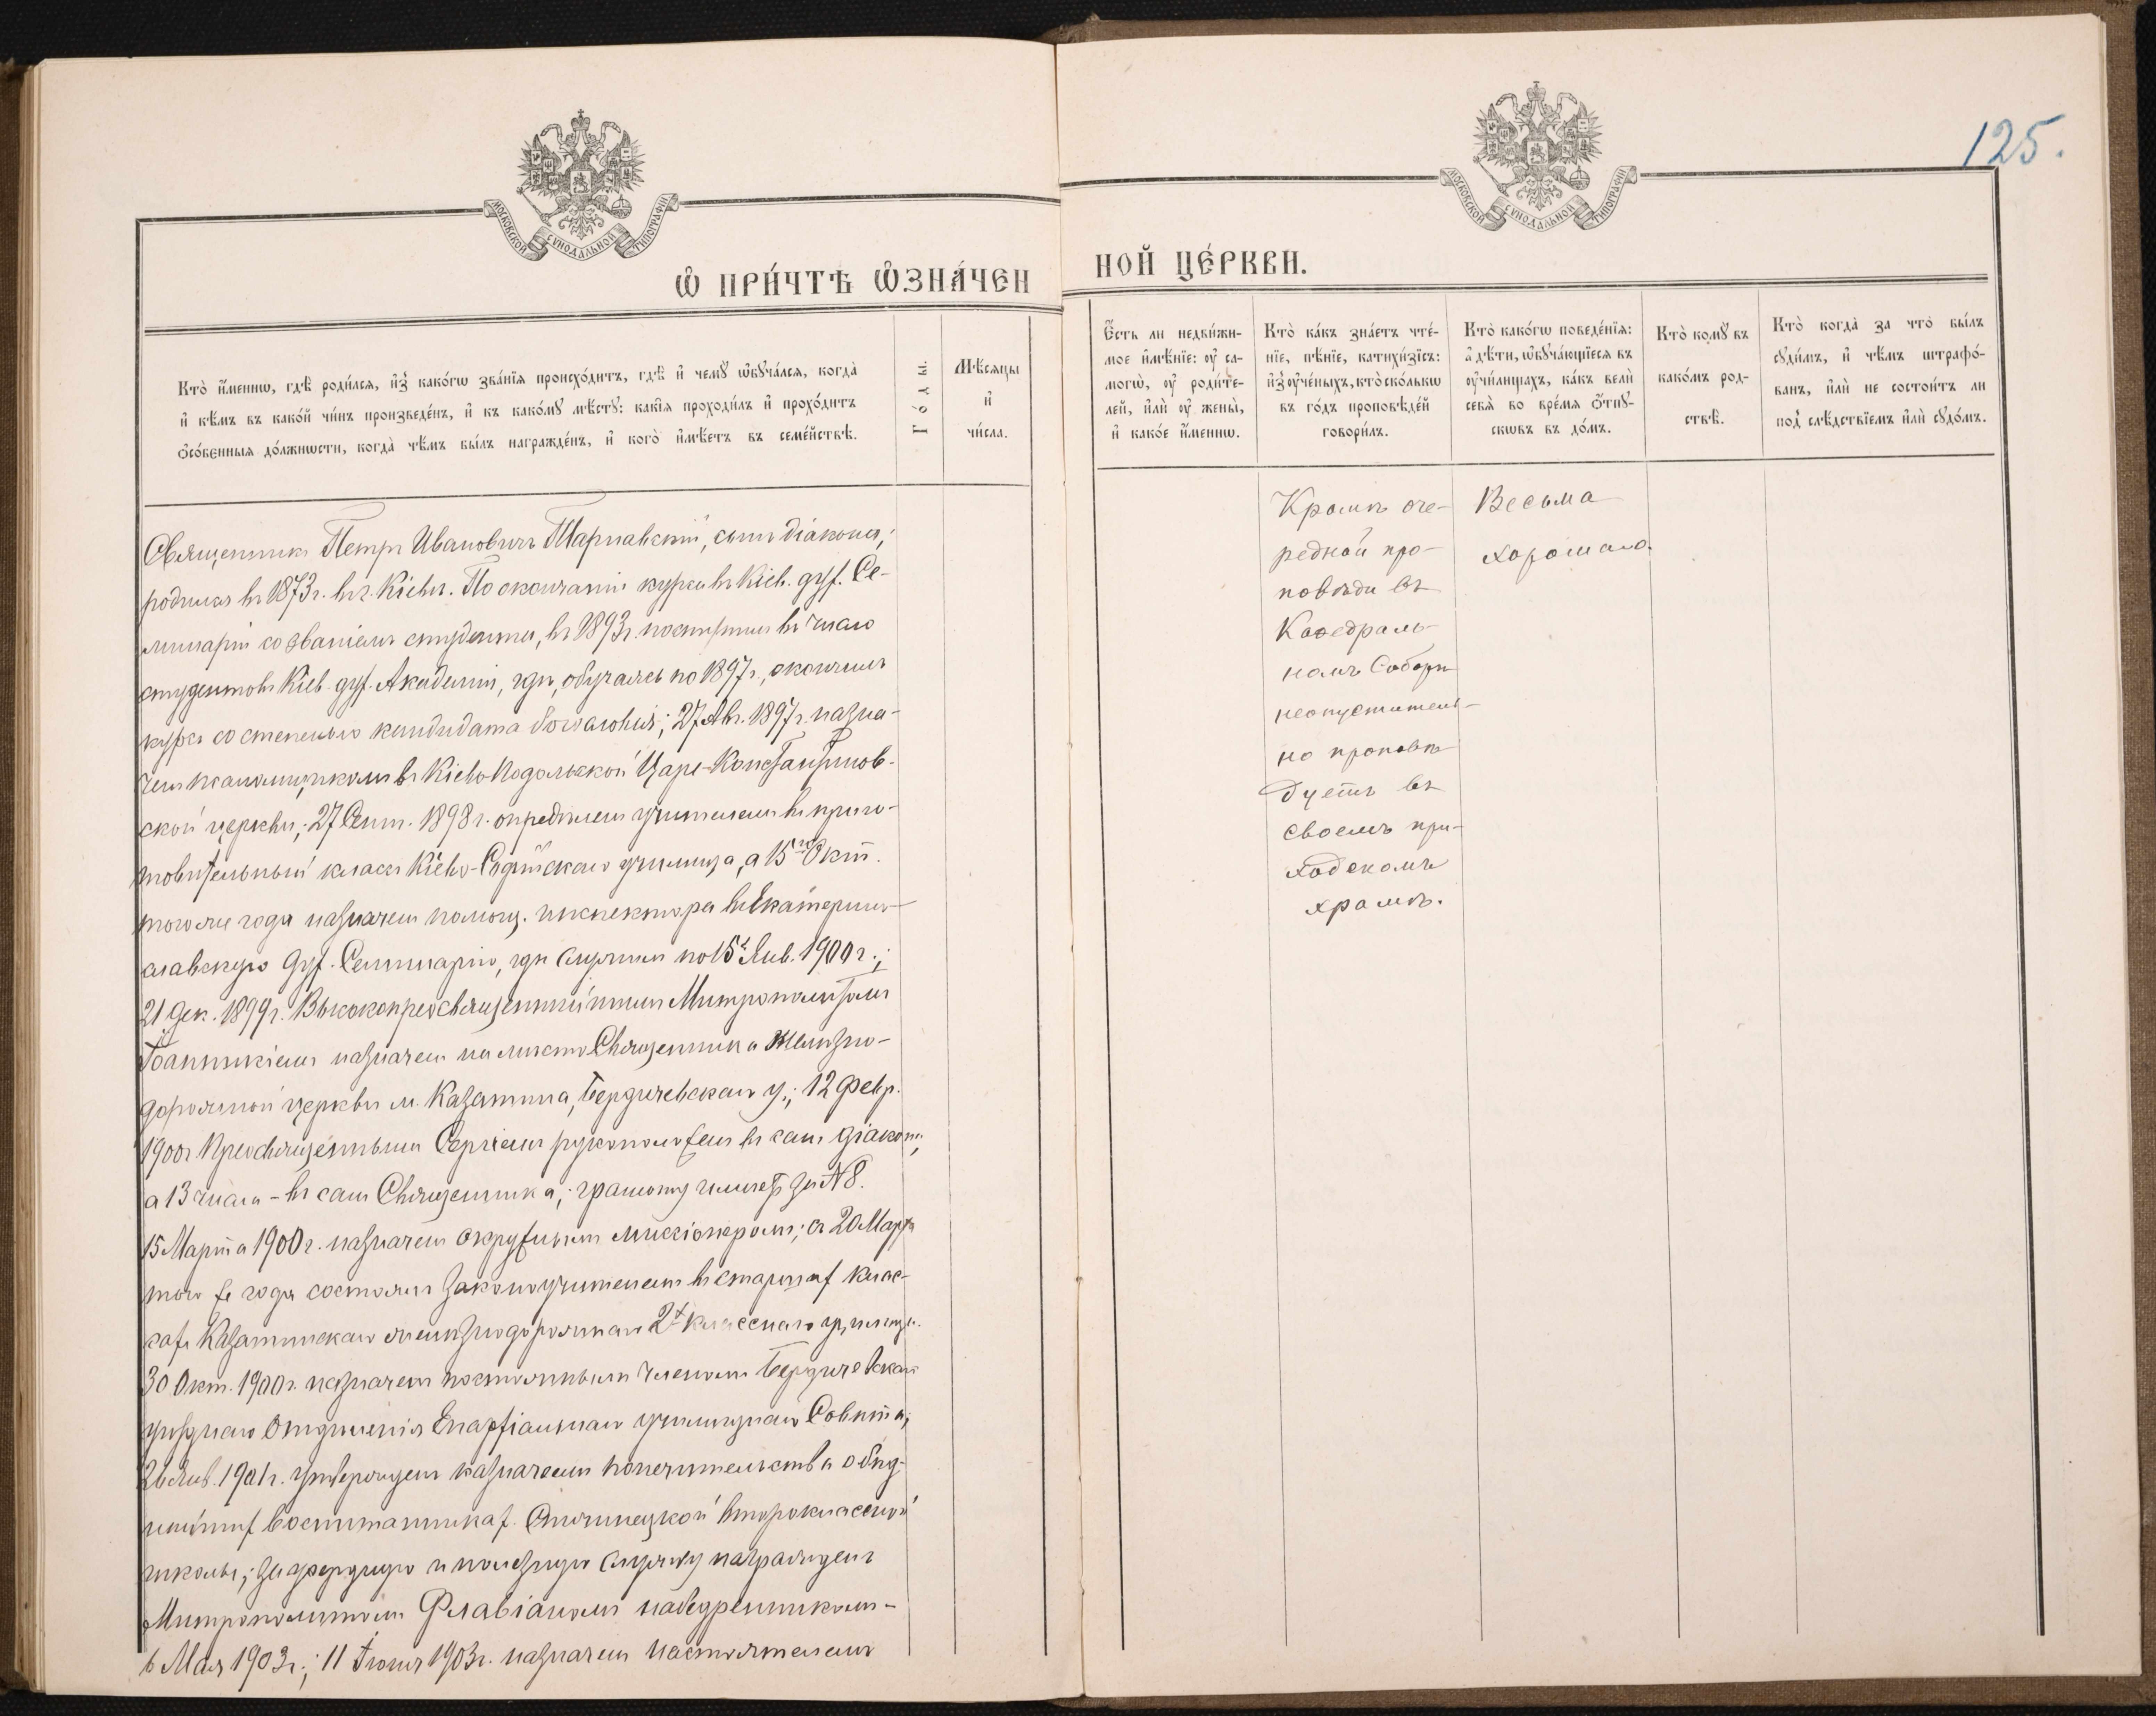 125.
МОСКОВСКОЙ СѴНОДАЛЬНОЙ ТИПОГРАФІИ
МОСКОВСКОЙ СѴНОДАЛЬНОЙ ТИПОГРАФІИ
Ѽ ПРИ́ЧТѢ Ѽ҆ЗНА́ЧЕН
НОЙ ЦЕ́РКВИ.
Кто̀ и҆́менно, гдѣ̀ роди́лсѧ, и҆з̾ како́гѡ зва́нїѧ происхо́дитъ, гдѣ̀ и҆ чемꙋ̀ ѡ҆бꙋча́лсѧ, когда̀
и҆ кѣ́мъ въ како́й чи́нъ произведе́нъ, и҆ къ како́мꙋ мѣ́стꙋ: какі̑ѧ проходи́лъ и҆ прохо́дитъ
ѻ҆со́бенныѧ до́лжнѡсти, когда̀ чѣ́мъ бы́лъ награжде́нъ, и҆ кого̀ и҆мѣ́етъ въ семе́йствѣ.
Го́ды.
Мѣ́сѧцы
и҆
чи́сла.
Є҆́сть ли недви́жи-
мое и҆мѣ́нїе: ᲂу҆ са-
могѡ̀, ᲂу҆ роди́те-
лей, и҆лѝ ᲂу҆ жены̀,
и҆ како́е и҆́меннѡ.
Кто̀ ка́къ зна́етъ чте́-
нїе, пѣ́нїе, катихи́зїсъ:
и҆з̾ ᲂу҆че́ныхъ, кто̀ ско́лькѡ
въ го́дъ проповѣ́дей
говори́лъ.
Кто̀ како́гѡ поведе́нїѧ:
а҆ дѣ́ти, ѡ҆бꙋча́ющїесѧ въ
ᲂу҆чи́лищахъ, ка́къ велѝ
себѧ̀ во вре́мѧ ѿпꙋ-
сковъ въ до́мъ.
Кто̀ комꙋ̀ въ
како́мъ род-
ствѣ̀.
Кто̀ когда̀ за что̀ бы́лъ
сꙋди́мъ, и҆ чѣ́мъ штрафо́-
ванъ, и҆лѝ не состои́тъ ли
под̾ слѣ́дствїемъ и҆лѝ сꙋдо́мъ.
Священникъ Петръ Ивановичъ Тарнавскій, сынъ діакона;
родился въ 1873 г. въ г. Кіевѣ. По окончаніи курса въ Кіев. дух. Се-
минаріи со званіемъ студента, въ 1893 г. поступилъ въ число
студентовъ Кіев. дух. Академіи, гдѣ, обучаясь по 1897 г., окончилъ
курсъ со степенью кандидата богословія; 27 Авг. 1897 г. назна-
ченъ псаломщикомъ въ Кіево-Подольской Царе-Константинов-
ской церкви; 27 Сент. 1898 г. опредѣленъ учителемъ въ приго-
товительный классъ Кіево-Софійскаго училища, а 15го Окт.
того же года назначенъ помощ. инспектора въ Екатерино-
славскую Дух. Семинарію, гдѣ служилъ по 15е Янв. 1900 г.;
21 Дек. 1899 г. Высокопреосвященнѣйшимъ Митрополитомъ
Іоанникіемъ назначенъ на мѣсто Священника Желѣзно-
дорожной церкви м. Казатина, Бердичевскаго у.; 12 Февр.
1900 г. Преосвященнымъ Сергіемъ рукоположенъ въ санъ діакона,
а 13 числа – въ санъ Священника; грамоту имѣетъ за № 8.
15 Марта 1900 г. назначенъ окружнымъ миссіонеромъ; съ 20 Марта
того же года состоялъ законоучителемъ въ старшихъ клас-
сахъ Казатинскаго желѣзнодорожнаго 2х класснаго училища.
30 Окт. 1900 г. назначенъ постояннымъ членомъ Бердичевскаго
уѣзднаго Отдѣленія Епархіальнаго училищнаго Совѣта;
26 Янв. 1901 г. утвержденъ казначеемъ попечительства о бѣд-
нѣйшихъ воспитанникахъ второклассной
школы; за усердную и полезную службу награжденъ
Митрополитомъ Флавіаномъ набедренникомъ –
6 Мая 1903 г.; 11 Іюня 1903 г. назначенъ настоятелемъ
Кромѣ оче-
редной про-
повѣди въ
Каѳедраль-
номъ Соборѣ
неопуститель-
но проповѣ-
дуетъ въ
своемъ при-
ходскомъ
храмѣ.
Весьма
хорошаго.